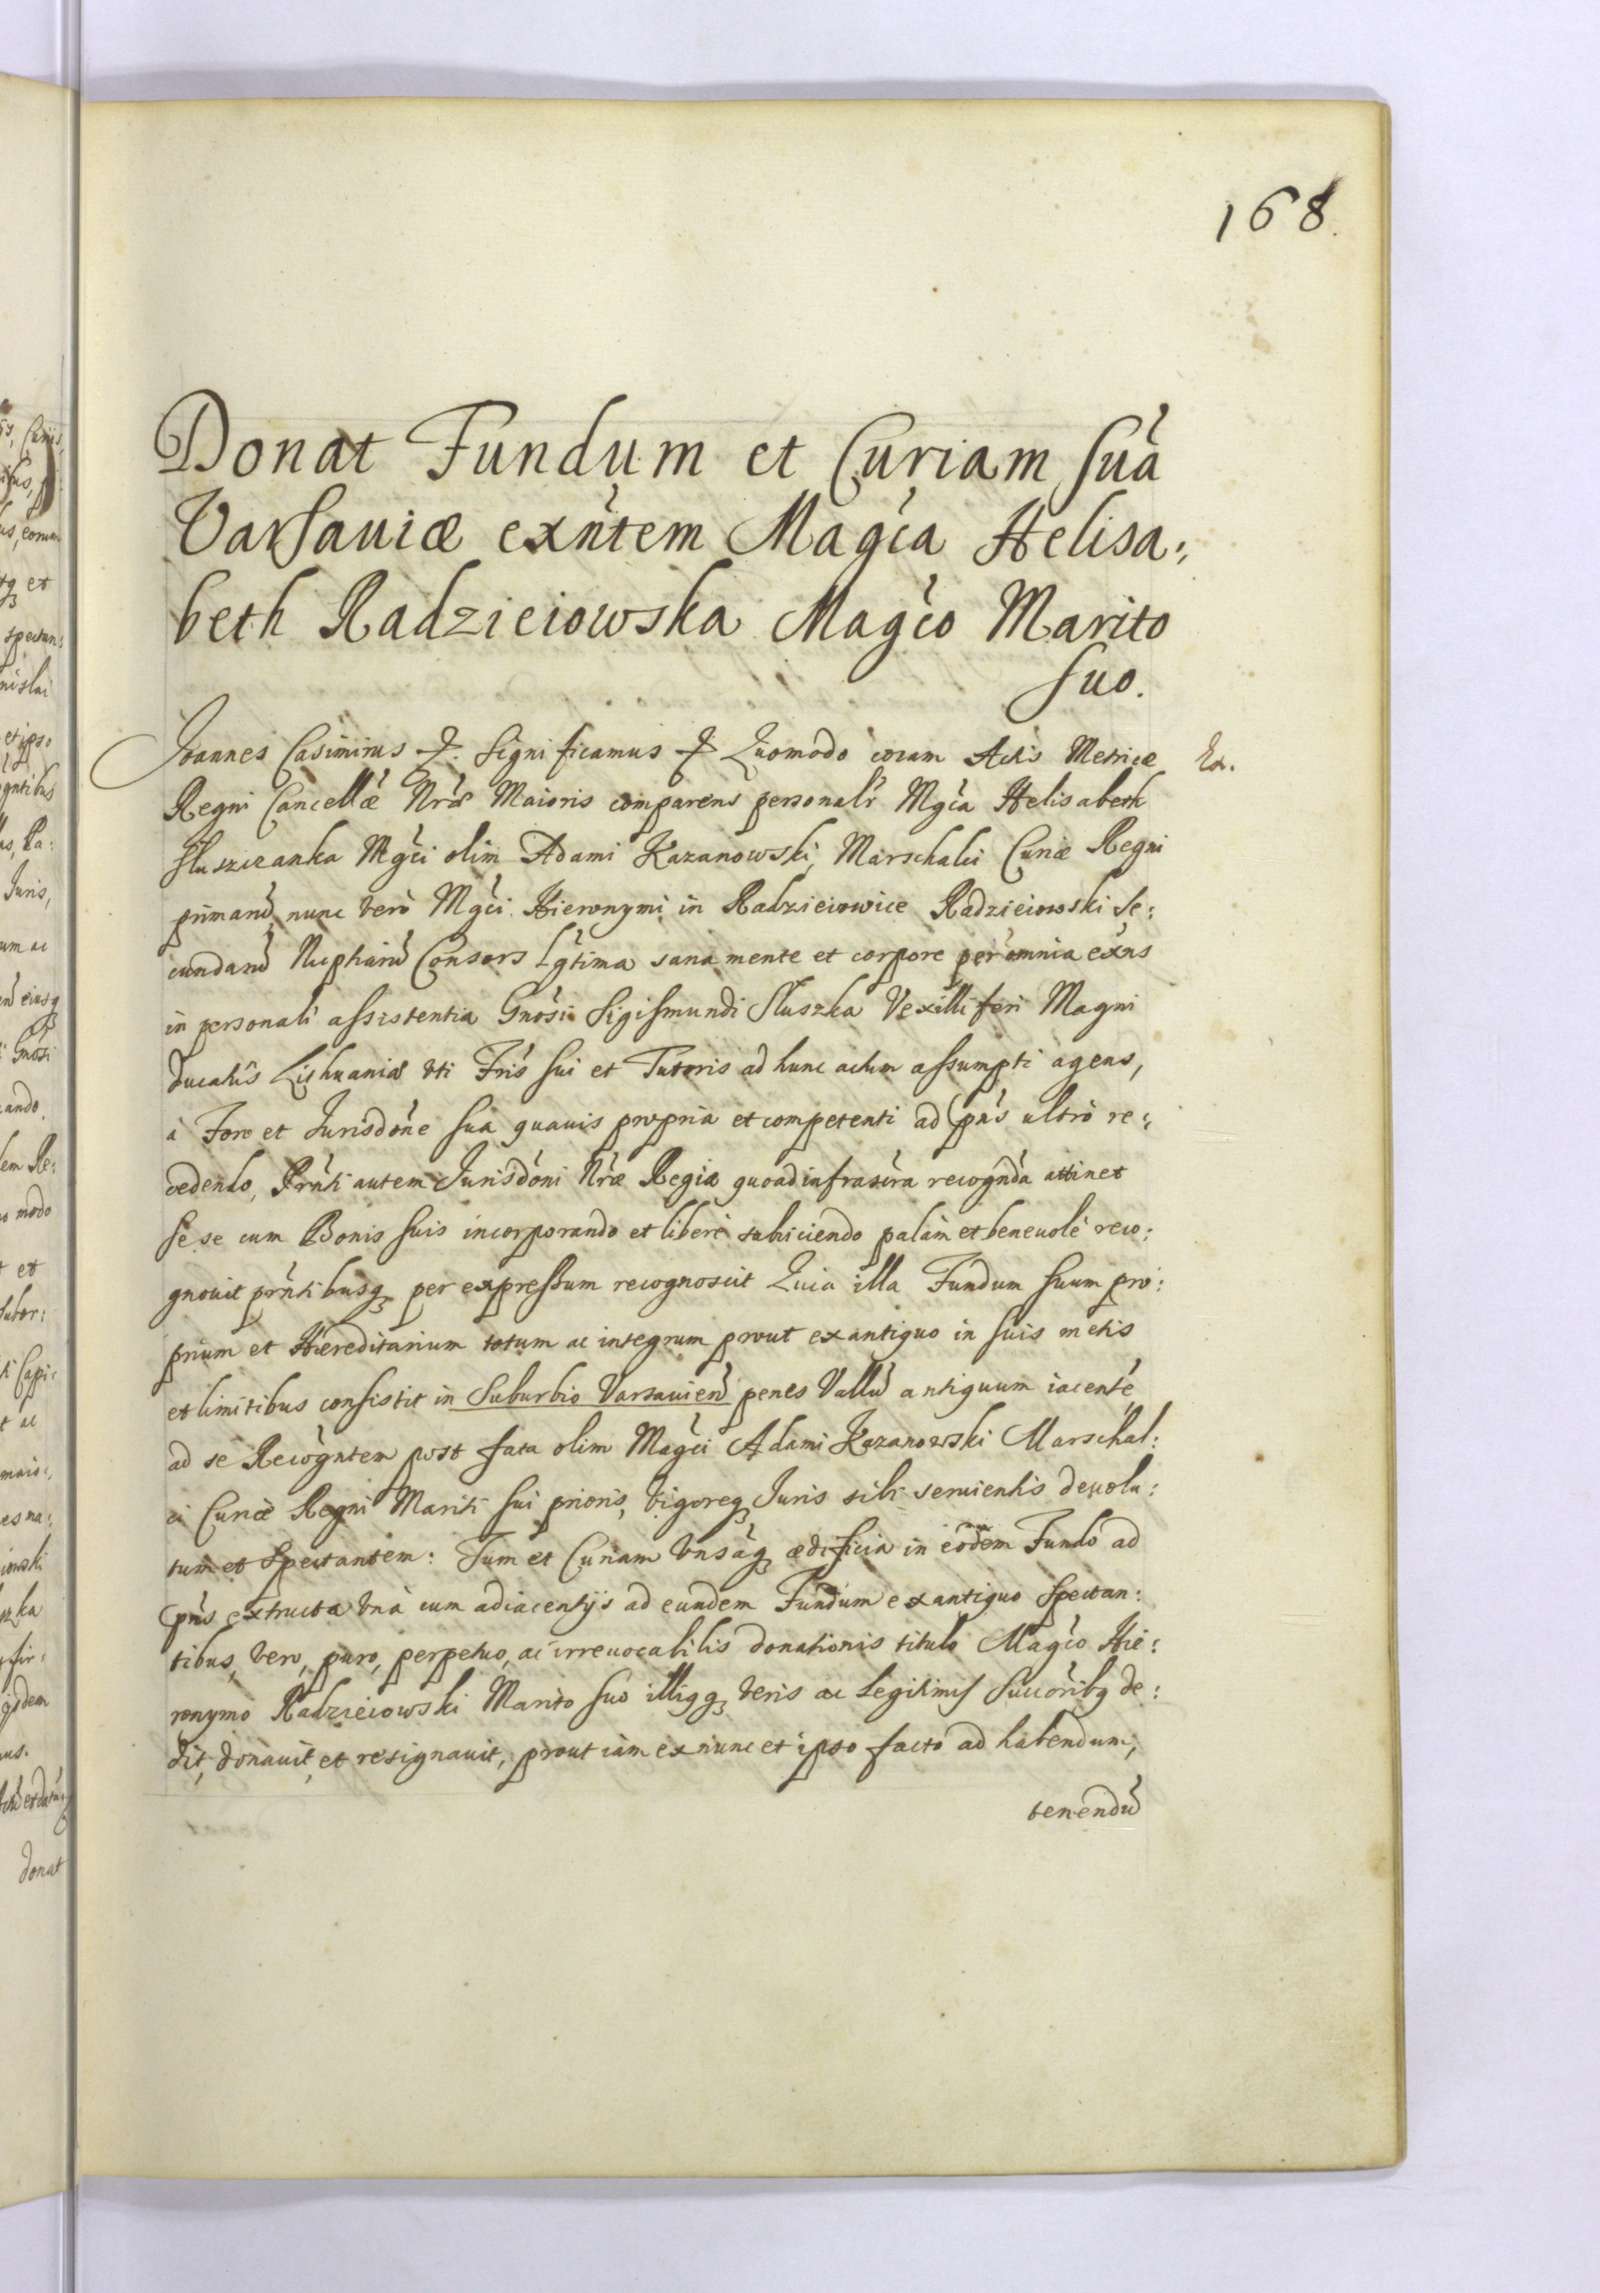 168.
Donat Fundum et Curiam Suã
Varsauiæ exñtem Magĉa Helisa:
beth Radzieiowska Magĉo Marito
Suo.
Joannes Casimirus &. Significamus & Quomodo coram Actis Metricæ
Regni Cancellæ Nræ Maioris comparens personalr Mgĉa Helisabeth
Sluszczanka Mgĉi olim Adami Kazanowski, Marschalci Curiæ Regni
primarũ, nunc verò Mgĉi Hieronymi in Radzieiowice Radzieiowski Se:
cundarũ Nuptiarũ Consors Lgtima sana mente et corpore per omnia exñs
in personali assistentia Gnosi Sigismundi Sluszka Vexilliferi Magni
Ducatûs Lithuaniæ uti Fris sui et Tutoris ad hunc actum assumpti agens,
à Foro et Jurisdõne sua quauis propria et competenti ad pñs ultrò re:
cedendo, Prñti autem Jurisdõni Nræ Regiæ quoad infrascra recogñda attinet
se se cum Bonis suis incorporando et liberè subiiciendo palàm et beneuolè reco:
gnouit prñtibusq per expressum recognoscit Quia illa Fundum suum pro:
prium et Hæreditarium totum ac integrum prout ex antiquo in suis metis
et limitibus consistit in Suburbio Varsauieñ penes Vallũ antiquum iacentẽ,
ad se Recogñtem post fata olim Magĉi Adami Kazanowski Marschal:
ci Curiæ Regni Mariti sui prioris, vigoreq Juris sibi seruientis deuolu:
tum et Spectantem: Tum et Curiam Vnsaq ædificia in eodem Fundo ad
pñs extructa vnà cum adiacentijs ad eundem Fundum ex antiquo Spectan:
tibus, vero, puro, perpetuo, ac irreuocabilis donationis titulo Magĉo Hie:
ronymo Radzieiowski Marito suo illiqq veris ac Legitimis Succoribq de:
dit, donauit, et resignauit, prout iàm ex nunc et ipso facto ad habendum,
tenendũ
Ex.